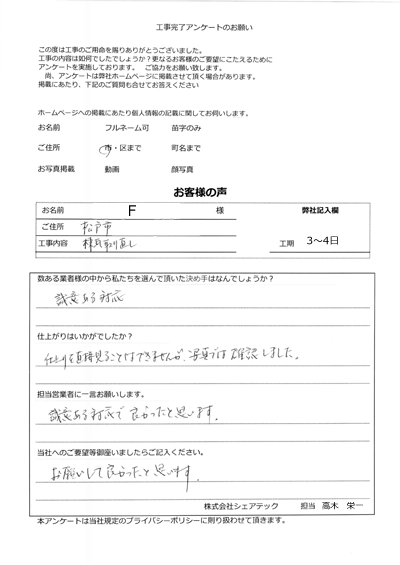 工事完了アンケートのお願い
この度は工事のご用命を賜りありがとうございました。
工事の内容は如何でしたでしょうか？更なるお客様のご要望にこたえるために
アンケートを実施しております。　ご協力をお願い致します。
尚、アンケートは弊社ホームページに掲載させて頂く場合があります。
掲載にあたり、下記のご質問も合せてお答えください
ホームページへの掲載にあたり個人情報の記載に関してお伺いします。
お名前　フルネーム可　苗字のみ
ご住所　市・区まで　町名まで
お写真掲載　動画　顔写真
お客様の声
お名前　F　様　弊社記入欄
ご住所　松戸市
工事内容　棟瓦取り直し　工期　3～4日
数ある業者様の中から私たちを選んで頂いた決め手はなんでしょうか？
誠意ある対応
仕上がりはいかがでしたか？
仕上りを直接見ることはできませんが、写真では確認しました。
担当営業者に一言お願いします。
誠意ある対応で良かったと思います。
当社へのご要望等御座いましたらご記入ください。
お願いして良かったと思います。
株式会社シェアテック　担当　高木　栄一
本アンケートは当社規定のプライバシーポリシーに則り扱わせて頂きます。